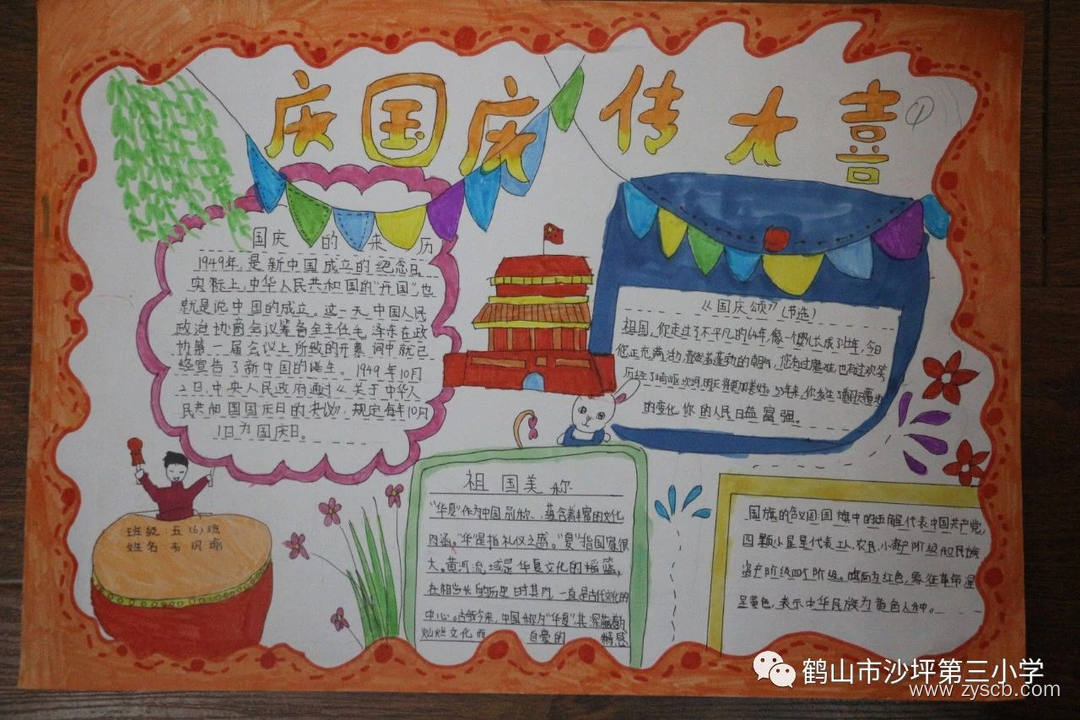 庆国庆传大喜
①
国庆的来历
1949年,是新中国成立的纪念日。
实际上,中华人民共和国的"开国",也
就是说中国的成立。这一天,中国人民
政治协商会议筹备会主任毛泽东在政
协第一届会议上所致的开幕词中就已
经宣告了新中国的诞生。1949年10月
2日,中央人民政府通过《关于中华人
民共和国国庆日的决议》,规定每年10月
1日为国庆日。
《国庆颂》(节选)
祖国,你走过了不平凡的64年,像一个 成 年,今日
您正充满活力,
历经了
的变化,你的人民日益富强。
班级:五(6)班
姓名:
祖国美称
"华夏"作为中国别称,蕴含着丰富的文化
内涵。"华"是指礼仪之盛。"夏"指国富很
大。黄河流域是华夏文化的摇篮,
在相当长的历史时其内一直是古代文化的
中心。 今来,中国称为"华夏"其深蕴
灿烂文化而自爱的情感
国旗的含义因国旗中的 代表中国共产党,
四颗小星星代表工人、农民、小资产阶级和民族
资产阶级四个阶级。旗面为红色,象征革命 星
呈黄色,表示中华民族为黄色人种。
鹤山市沙坪第三小学
www.zyscb.com